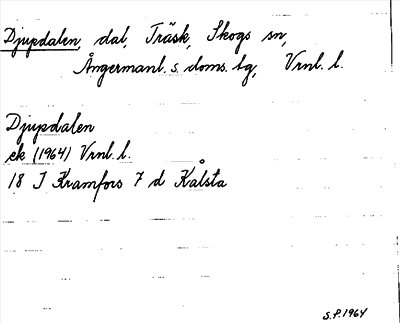 Djupdalen, dal, Träsk, Skogs sn,
Ångermanl. s. doms. tg, Vrnl. l.
Djupdalen
ek (1964) Vrnl. l.
18 I Kramfors 7 d Kålsta
S.P. 1964